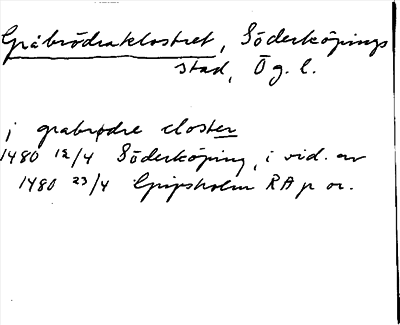 Gråbrödraklostret, Söderköpings
stad, Ög. l.
j grabrødre closter
1480 12/4 Söderköping, i vid. av
1480 23/4 Gripsholm RA p or.